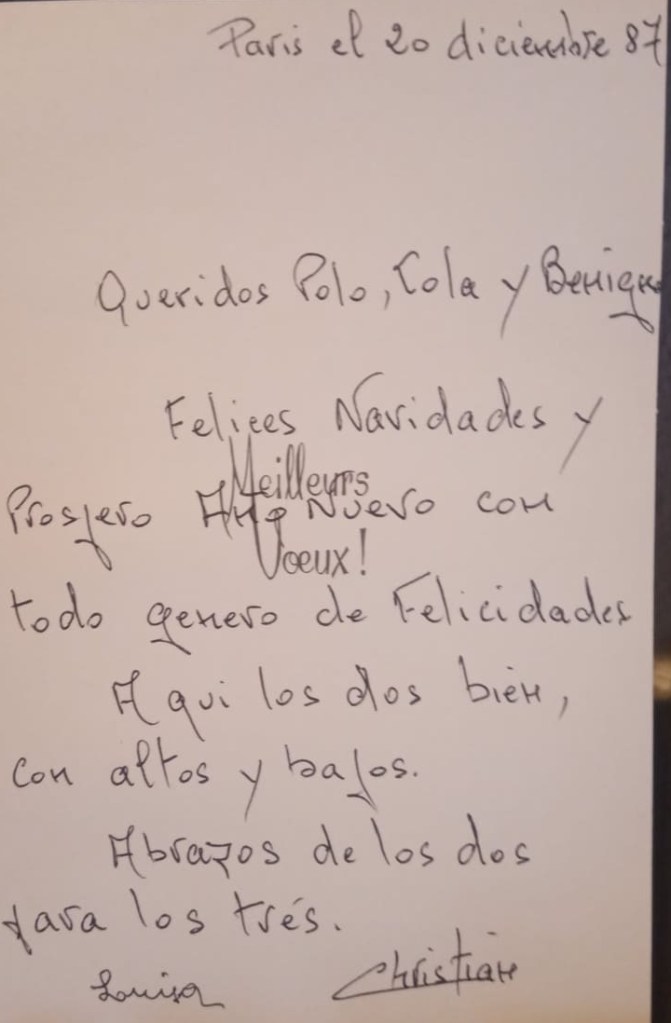 Paris el 20 diciembre 87
Queridos Polo, Cola y Benigno
Felices Navidades y
Meilleurs
Prospero Año Nuevo con
Voeux!
todo genero de Felicidades
Aqui los dos bién,
con altos y bajos.
Abrazos de los dos
para los trés.
Louisa Christian